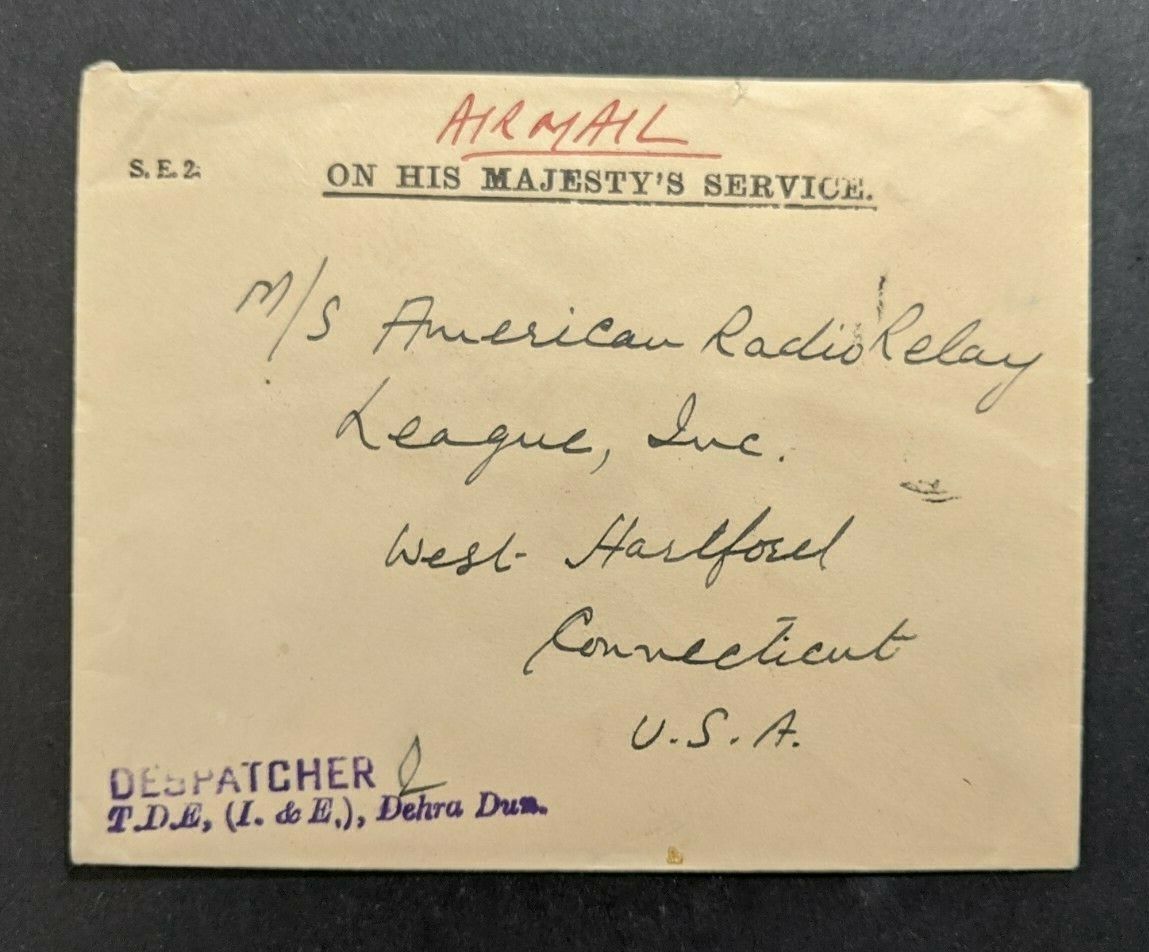 AIRMAIL
S. E. 2.
ON HIS MAJESTY'S SERVICE.
M/S American Radio Relay
League, Inc.
West Hartford
Connecticut
U.S.A.
DESPATCHER
T.D.E, (I. & E.), Dehra Dun.